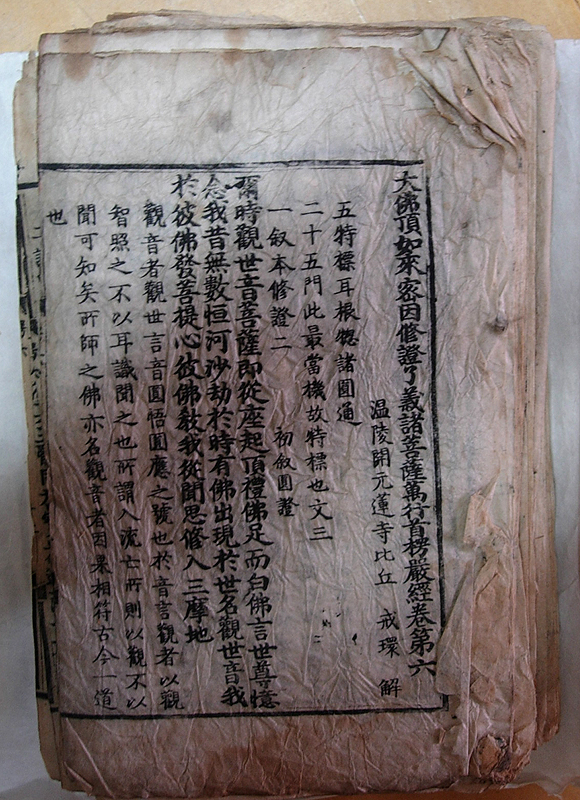 大佛頂如來密因修證了義諸菩薩萬行首楞嚴經卷第六
温陵開元蓮寺比丘 戒環 解
五特標耳根㧾諸圓通
二十五門此最當機故特標也文三
一叙本修證二 初叙圓證
爾時觀世音菩薩即從座起頂禮佛足而白佛言世尊憶
念我昔無數恒河沙劫於時有佛出現於世名觀世音我
於彼佛發菩提心彼佛教我從聞思修入三摩地
觀音者觀世言音圓悟圓應之號也於音言觀者以觀
智照之不以耳識聞之也所謂入流亡所則以觀不以
聞可知矣所師之佛亦名觀音者因果相符古今一道
也